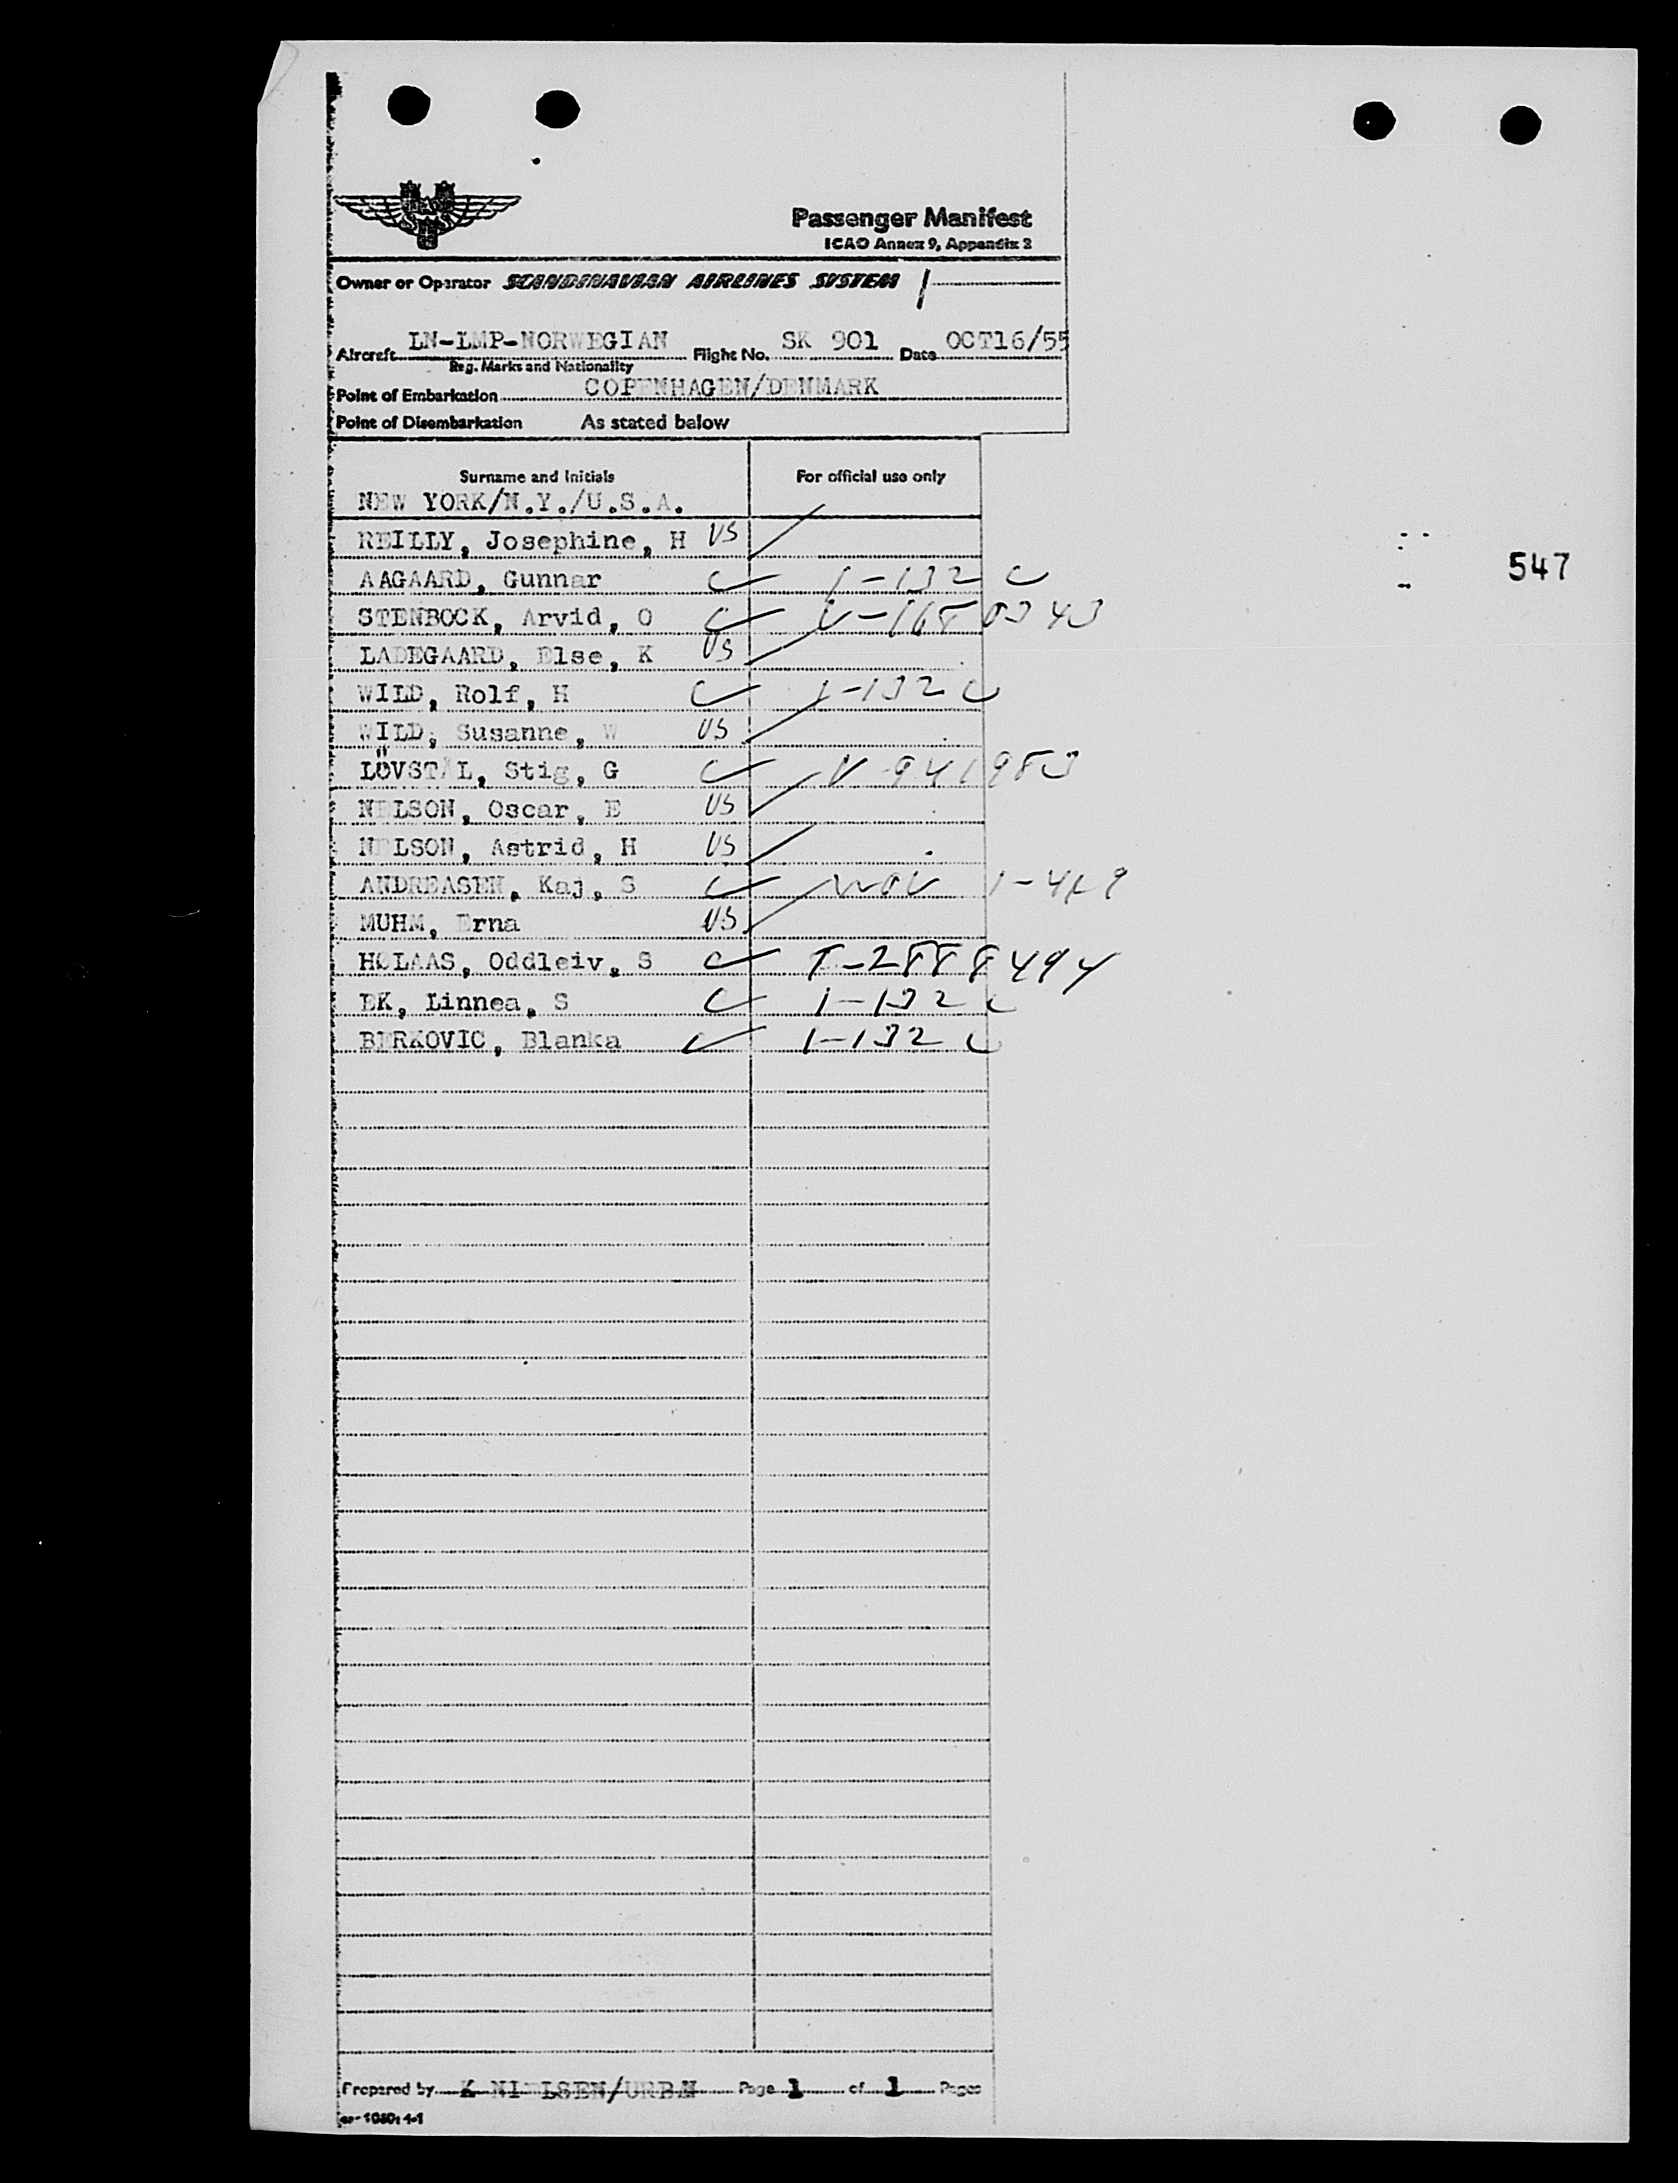 Passenger Manifest
ICAO Annex 9, Appendix 2
Owner or Operator SCANDINAVIAN AIRLINES SYSTEM
Aircraft LN-LMP-NORWEGIAN Flight No. SK 901 Date OCT16/55
Reg. Marks and Nationality
Point of Embarkation COPENHAGEN/DENMARK
Point of Disembarkation As stated below
Surname and Initials For official use only
NEW YORK/N.Y./U.S.A.
REILLY, Josephine, H US
547
AAGAARD, Gunnar C 1-132 C
STENBOCK, Arvid, O C
LADEGAARD, Else, K US
WILD, Rolf, H C 1-132 C
WILD, Susanne, W US
LÖVSTÅL, Stig, G C V-941983
NELSON, Oscar, E US
NELSON, Astrid, H US
ANDREASEN, Kaj, S C
MUHM, Erna US
HØLAAS, Oddleiv, S C T-2888494
EK, Linnea, S C 1-132 C
BERKOVIC, Blanka 1-132 C
Prepared by K NIELSEN/URBAN Page 1 of 1 Pages